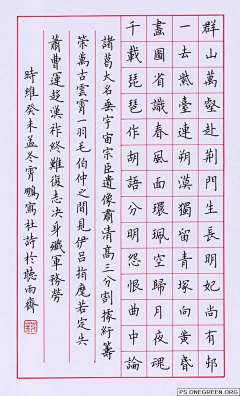 群山萬壑赴荆門生長明妃尚有邨
一去紫臺連朔漠獨留青塚向黃昏
畫圖省識春風面環珮空歸月夜魂
千載琵琶作胡語分明怨恨曲中論
諸葛大名垂宇宙宗臣遺像肅清高三分割據紆籌
策萬古雲霄一羽毛伯仲之間見伊呂指麾若定失
蕭曹運移漢祚終難復志决身殲軍務勞
時維癸未孟冬霄鵬寫杜詩於聽雨齋
PS.ONEGREEN.ORG